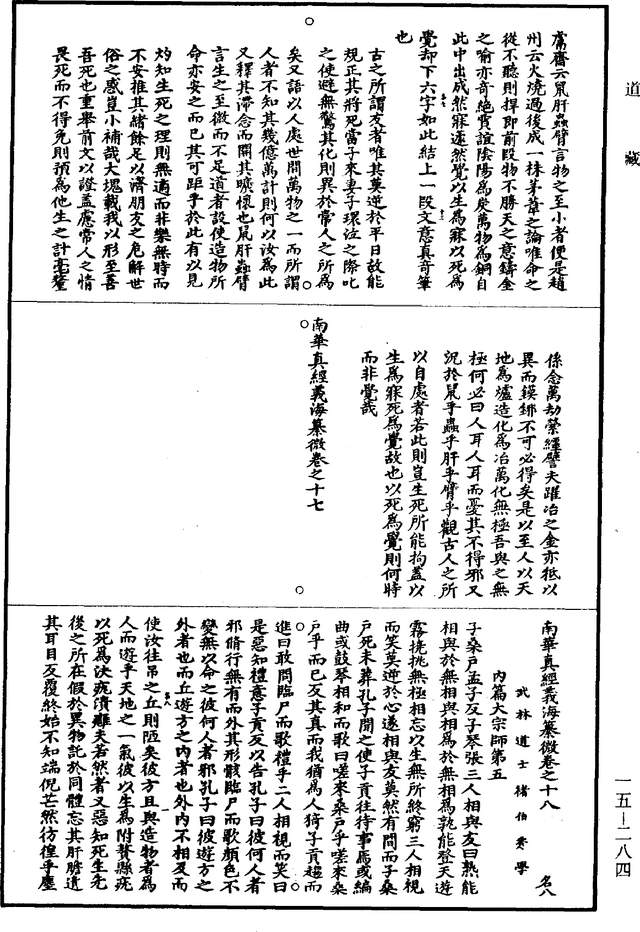 道藏
鬳齋云鼠肝蟲臂言物之至小者便是趙
州云火燒過後成一株茅葦之論唯命之
從不聽則捍即前段物不勝天之意鑄金
之喻亦奇絶賈誼陰陽爲炭萬物爲銅自
此中出成然寐蘧然覺以生爲寐以死爲
覺却下六字如此結上一段文意真奇筆
也
古之所謂友者唯其莫逆於平日故能
規正其將死當子來妻子環泣之際叱
之使避無驚其化則異於常人之所爲
矣又語以人處世間萬物之一而所謂
人者不知其幾億萬計則何以汝爲此
又釋其滯念而開其曠懷也鼠肝蟲臂
言生之至微而不足道者設使造物所
命亦安之而已其可距乎於此有以見
灼知生死之理則無適而非樂無時而
不安推其緒餘足以濟朋友之危解世
俗之惑豈小補哉大塊載我以形至善
吾死也重舉前文以證蓋慮常人之情
畏死而不得免則預爲他生之計毫釐
係念萬劫縈纏譬夫躍冶之金亦祗以
異而鏌鋣不可必得矣是以至人以天
地爲爐造化爲冶萬化無極吾與之無
極何必曰人耳人耳而憂其不得邪又
況於鼠乎蟲乎肝乎臂乎觀古人之所
以自處者若此則豈生死所能拘蓋以
生爲寐死爲覺故也以死爲覺則何時
而非覺哉
南華真經義海纂微卷之十七
南華真經義海纂微卷之十八 名八
武林道士褚伯秀學
內篇大宗師第五
子桑戶孟子反子琴張三人相與友曰熟能
相與於無相與相爲於無相爲孰能登天遊
霧撓挑無極相忘以生無所終窮三人相視
而笑莫逆於心遂相與友莫然有間而子桑
戶死未葬孔子聞之使子貢往待事焉或編
曲或鼓琴相和而歌曰嗟來桑戶乎嗟來桑
戶乎而已反其真而我猶爲人猗子貢趨而
進曰敢問臨尸而歌禮乎二人相視而笑曰
是惡知禮意子貢反以告孔子曰彼何人者
邪脩行無有而外其形骸臨尸而歌顏色不
變無以命之彼何人者邪孔子曰彼遊方之
外者也而丘遊方之內者也外內不相及而
使汝往吊之丘則陋矣彼方且與造物者爲
人而遊乎天地之一氣彼以生爲附贅縣疣
以死爲決𤴯潰癰夫若然者又惡知死生先
後之所在假於異物託於同體忘其肝膽遺
其耳目反覆終始不知端倪芒然彷徨乎塵
一五－二八四